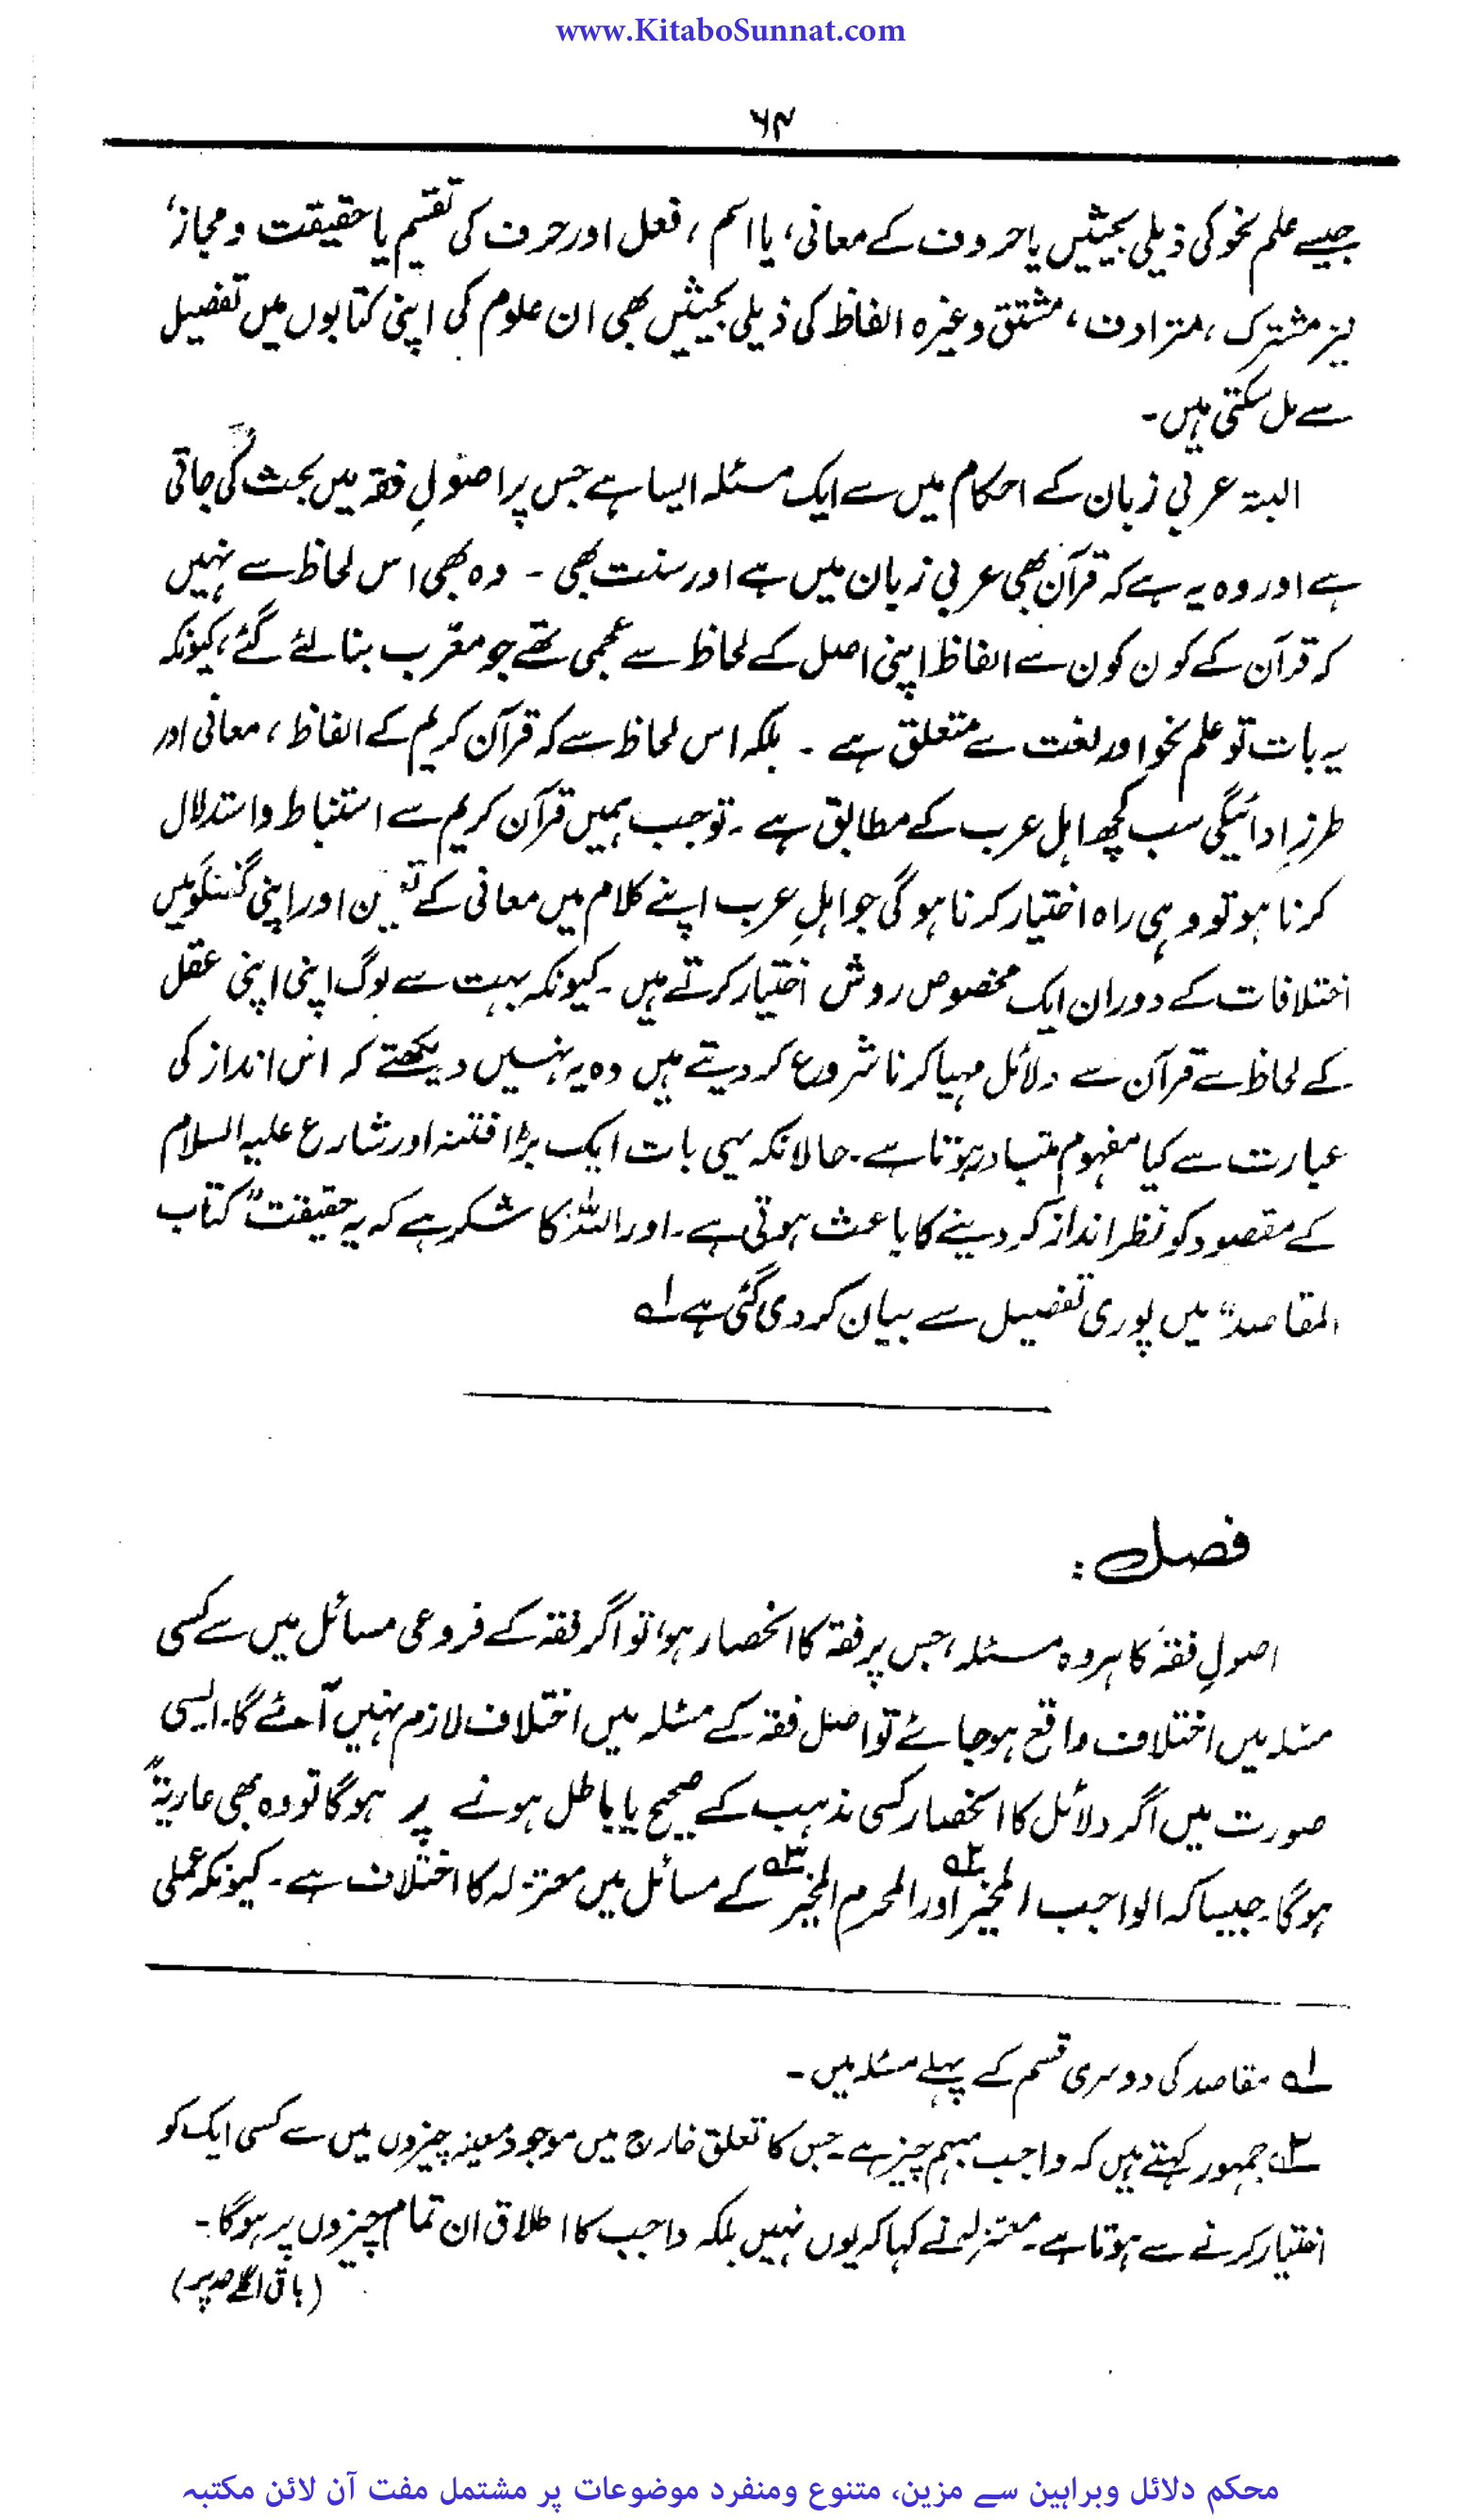 www.KitaboSunnat.com
۶۴
جیسے علم نحو کی ذیلی بحیثیں یا حروف کے معانی، یا اسم، فعل اور حرف کی تقسیم یا حقیقت و مجاز،
نیز مشترک، مترادف، مشتق وغیرہ الفاظ کی ذیلی بحیثیں بھی ان علوم کی اپنی کتابوں میں تفصیل
سے مل سکتی ہیں۔
البتہ عربی زبان کے احکام میں سے ایک مسئلہ ایسا ہے جس پر اصولِ فقہ میں بحث کی جاتی
ہے اور وہ یہ ہے کہ قرآن بھی عربی زبان میں ہے اور سنت بھی ۔ وہ بھی اس لحاظ سے نہیں
کہ قرآن کے کون کون سے الفاظ اپنی اصل کے لحاظ سے عجمی تھے جو معرب بنا لئے گئے، کیونکہ
یہ بات تو علم نحو اور لغت سے متعلق ہے ۔ بلکہ اس لحاظ سے کہ قرآن کریم کے الفاظ، معانی اور
طرزِ ادائیگی سب کچھ اہل عرب کے مطابق ہے ۔ تو جب ہمیں قرآن کریم سے استنباط و استدلال
کرنا ہو تو وہی راہ اختیار کرنا ہو گی جو اہلِ عرب اپنے کلام میں معانی کے تعین اور اپنی گفتگو میں
اختلافات کے دوران ایک مخصوص روش اختیار کرتے ہیں ۔ کیونکہ بہت سے لوگ اپنی اپنی عقل
کے لحاظ سے قرآن سے دلائل مہیا کرنا شروع کر دیتے ہیں وہ یہ نہیں دیکھتے کہ اس انداز کی
عبارت سے کیا مفہوم متبادر ہوتا ہے۔ حالانکہ یہی بات ایک بڑا فتنہ اور شارع علیہ السلام
کے مقصود کو نظر انداز کر دینے کا باعث ہوتی ہے۔ اور اللہ کا شکر ہے کہ یہ حقیقت "کتاب
المقاصد" میں پوری تفصیل سے بیان کر دی گئی ہے ۱ے
فصل :
اصولِ فقہ کا ہر وہ مسئلہ، جس پر فقہ کا انحصار ہو، تو اگر فقہ کے فروعی مسائل میں سے کسی
مسئلہ میں اختلاف واقع ہو جائے تو اصل فقہ کے مسئلہ میں اختلاف لازم نہیں آئے گا۔ ایسی
صورت میں اگر دلائل کا انحصار کسی مذہب کے صحیح یا باطل ہونے پر ہو گا تو وہ بھی عاریۃً
ہو گا۔ جیسا کہ الواجب المخیر ۲ے اور المحرم المخیر ۳ے کے مسائل میں معتزلہ کا اختلاف ہے۔ کیونکہ عملی
۱ے مقاصد کی دوسری قسم کے پہلے مسئلہ میں ۔
۲ے جمہور کہتے ہیں کہ واجب مبہم چیز ہے۔ جس کا تعلق خارج میں موجود معینہ چیزوں میں سے کسی ایک کو
اختیار کرنے سے ہوتا ہے۔ معتزلہ نے کہا کہ یوں نہیں بلکہ واجب کا اطلاق ان تمام چیزوں پر ہو گا۔
(باقی اگلے صہ پر)
محکم دلائل وبراہین سے مزین، متنوع ومنفرد موضوعات پر مشتمل مفت آن لائن مکتبہ